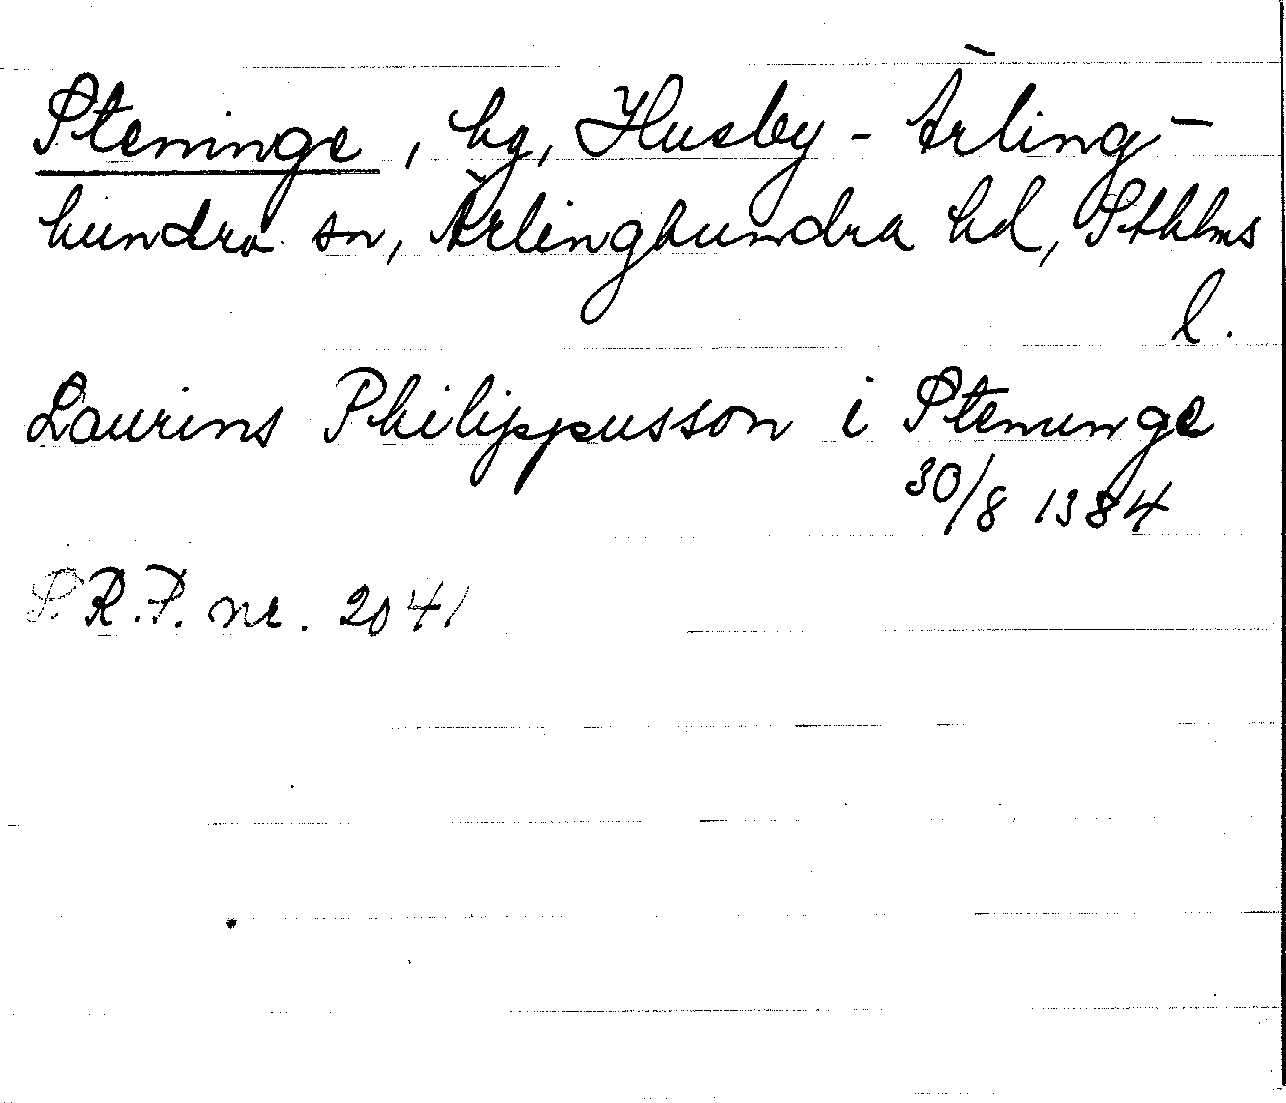 Steninge, hg, Husby-Ärling-
hundra sn, Ärlinghundra hd, Sthlms
l.
Laurens Philippusson i Stenunge
30/8 1384
S.R.P. nr. 2041